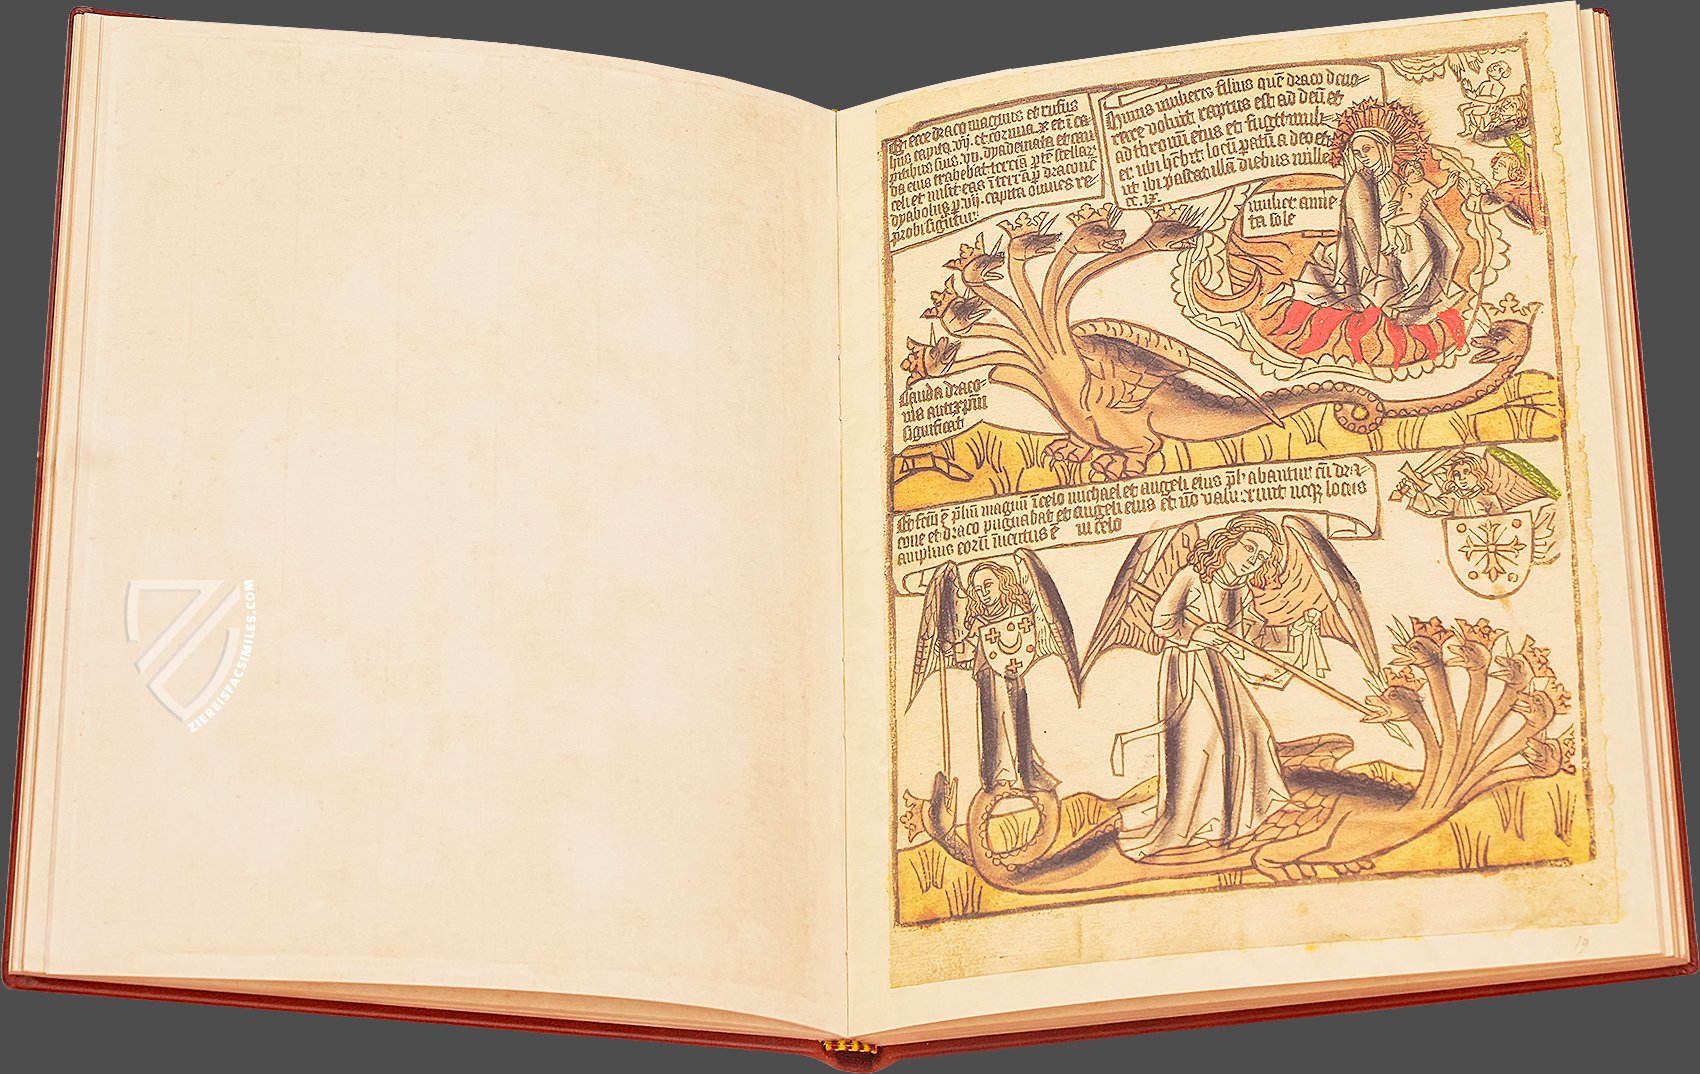 Ecce draco magnus et rufus
capita vij. et cornua x et i ca
pitibus suis vij. dyademata et cau
da eius trahebat terciā ptē stellar
celi et misit eas i terrā p draconē
dyabolus p vij. capita omnes re
probi
Huius mulieris filius quē draco devo
rare voluit raptus est ad deū et
ad thronū eius et fugit muli
er ubi hēbit locū patū a deo et
ut ibi pascat illā diebus mille
cc. lx.
mulier amic
ta sole
Cauda draco
nis
significat
magnū i celo michael et angeli eius cū dra
cone et draco pugnabat et angeli eius et nō neqȝ locus
amplius eorū in celo
ZIEREISFACSIMILES.COM
19